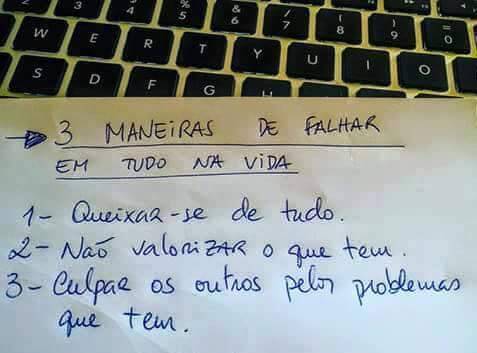 2 3 4 % 5 & 6 / 7 ( 8 ) 9 = 0
W E R T Y U I O
S D F G
3 MANEIRAS DE FALHAR
EM TUDO NA VIDA
1- Queixar-se de tudo.
2- Não valorizar o que tem.
3- Culpar os outros pelos problemas
que tem.